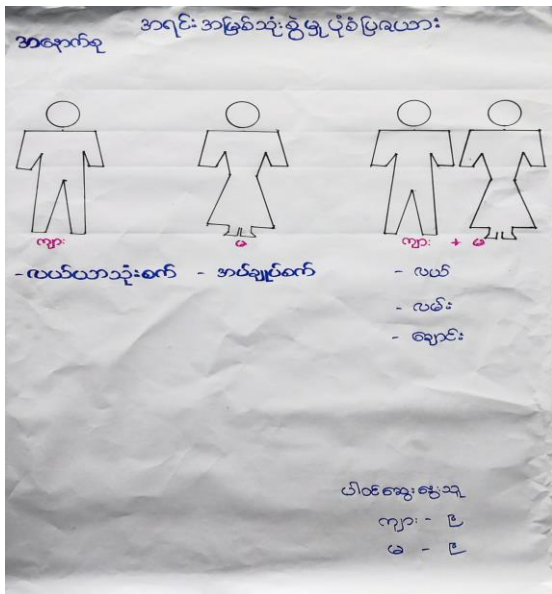 အရင်းအမြစ်သုံးစွဲမှုပုံစံပြဇယား
အနောက်စု
ကျား မ ကျား + မ
- လယ်ယာသုံးစက် - အပ်ချုပ်စက် - လယ်
- လမ်း
- ချောင်း
ပါဝင်ဆွေးနွေးသူ
ကျား - ၉
မ - ၉